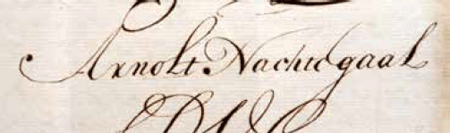 Arnolt Nachtegaal